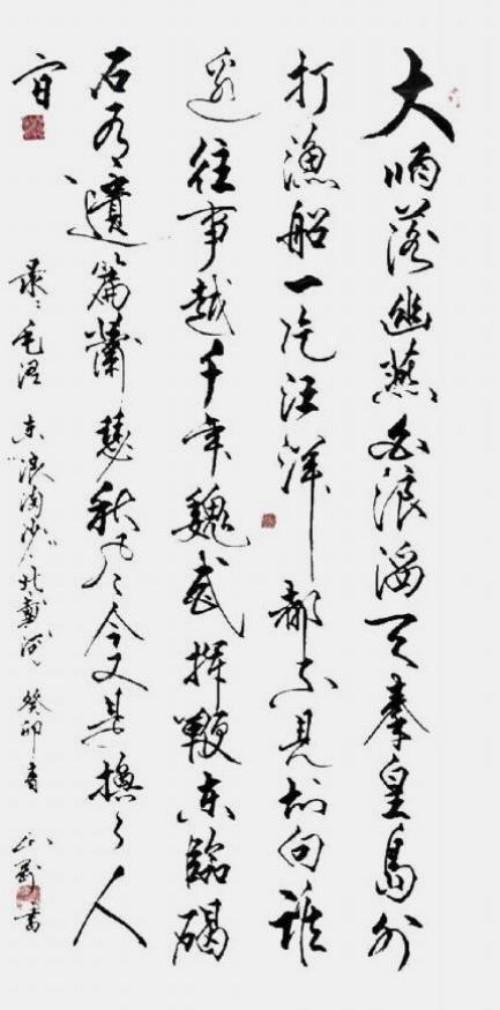 大雨落幽燕白浪滔天秦皇島外
打漁船一片汪洋都不見知向誰
邊往事越千年魏武揮鞭東臨碣
石有遺篇蕭瑟秋風今又是換了人
间
录毛泽东“浪淘沙”北戴河 癸卯春 书